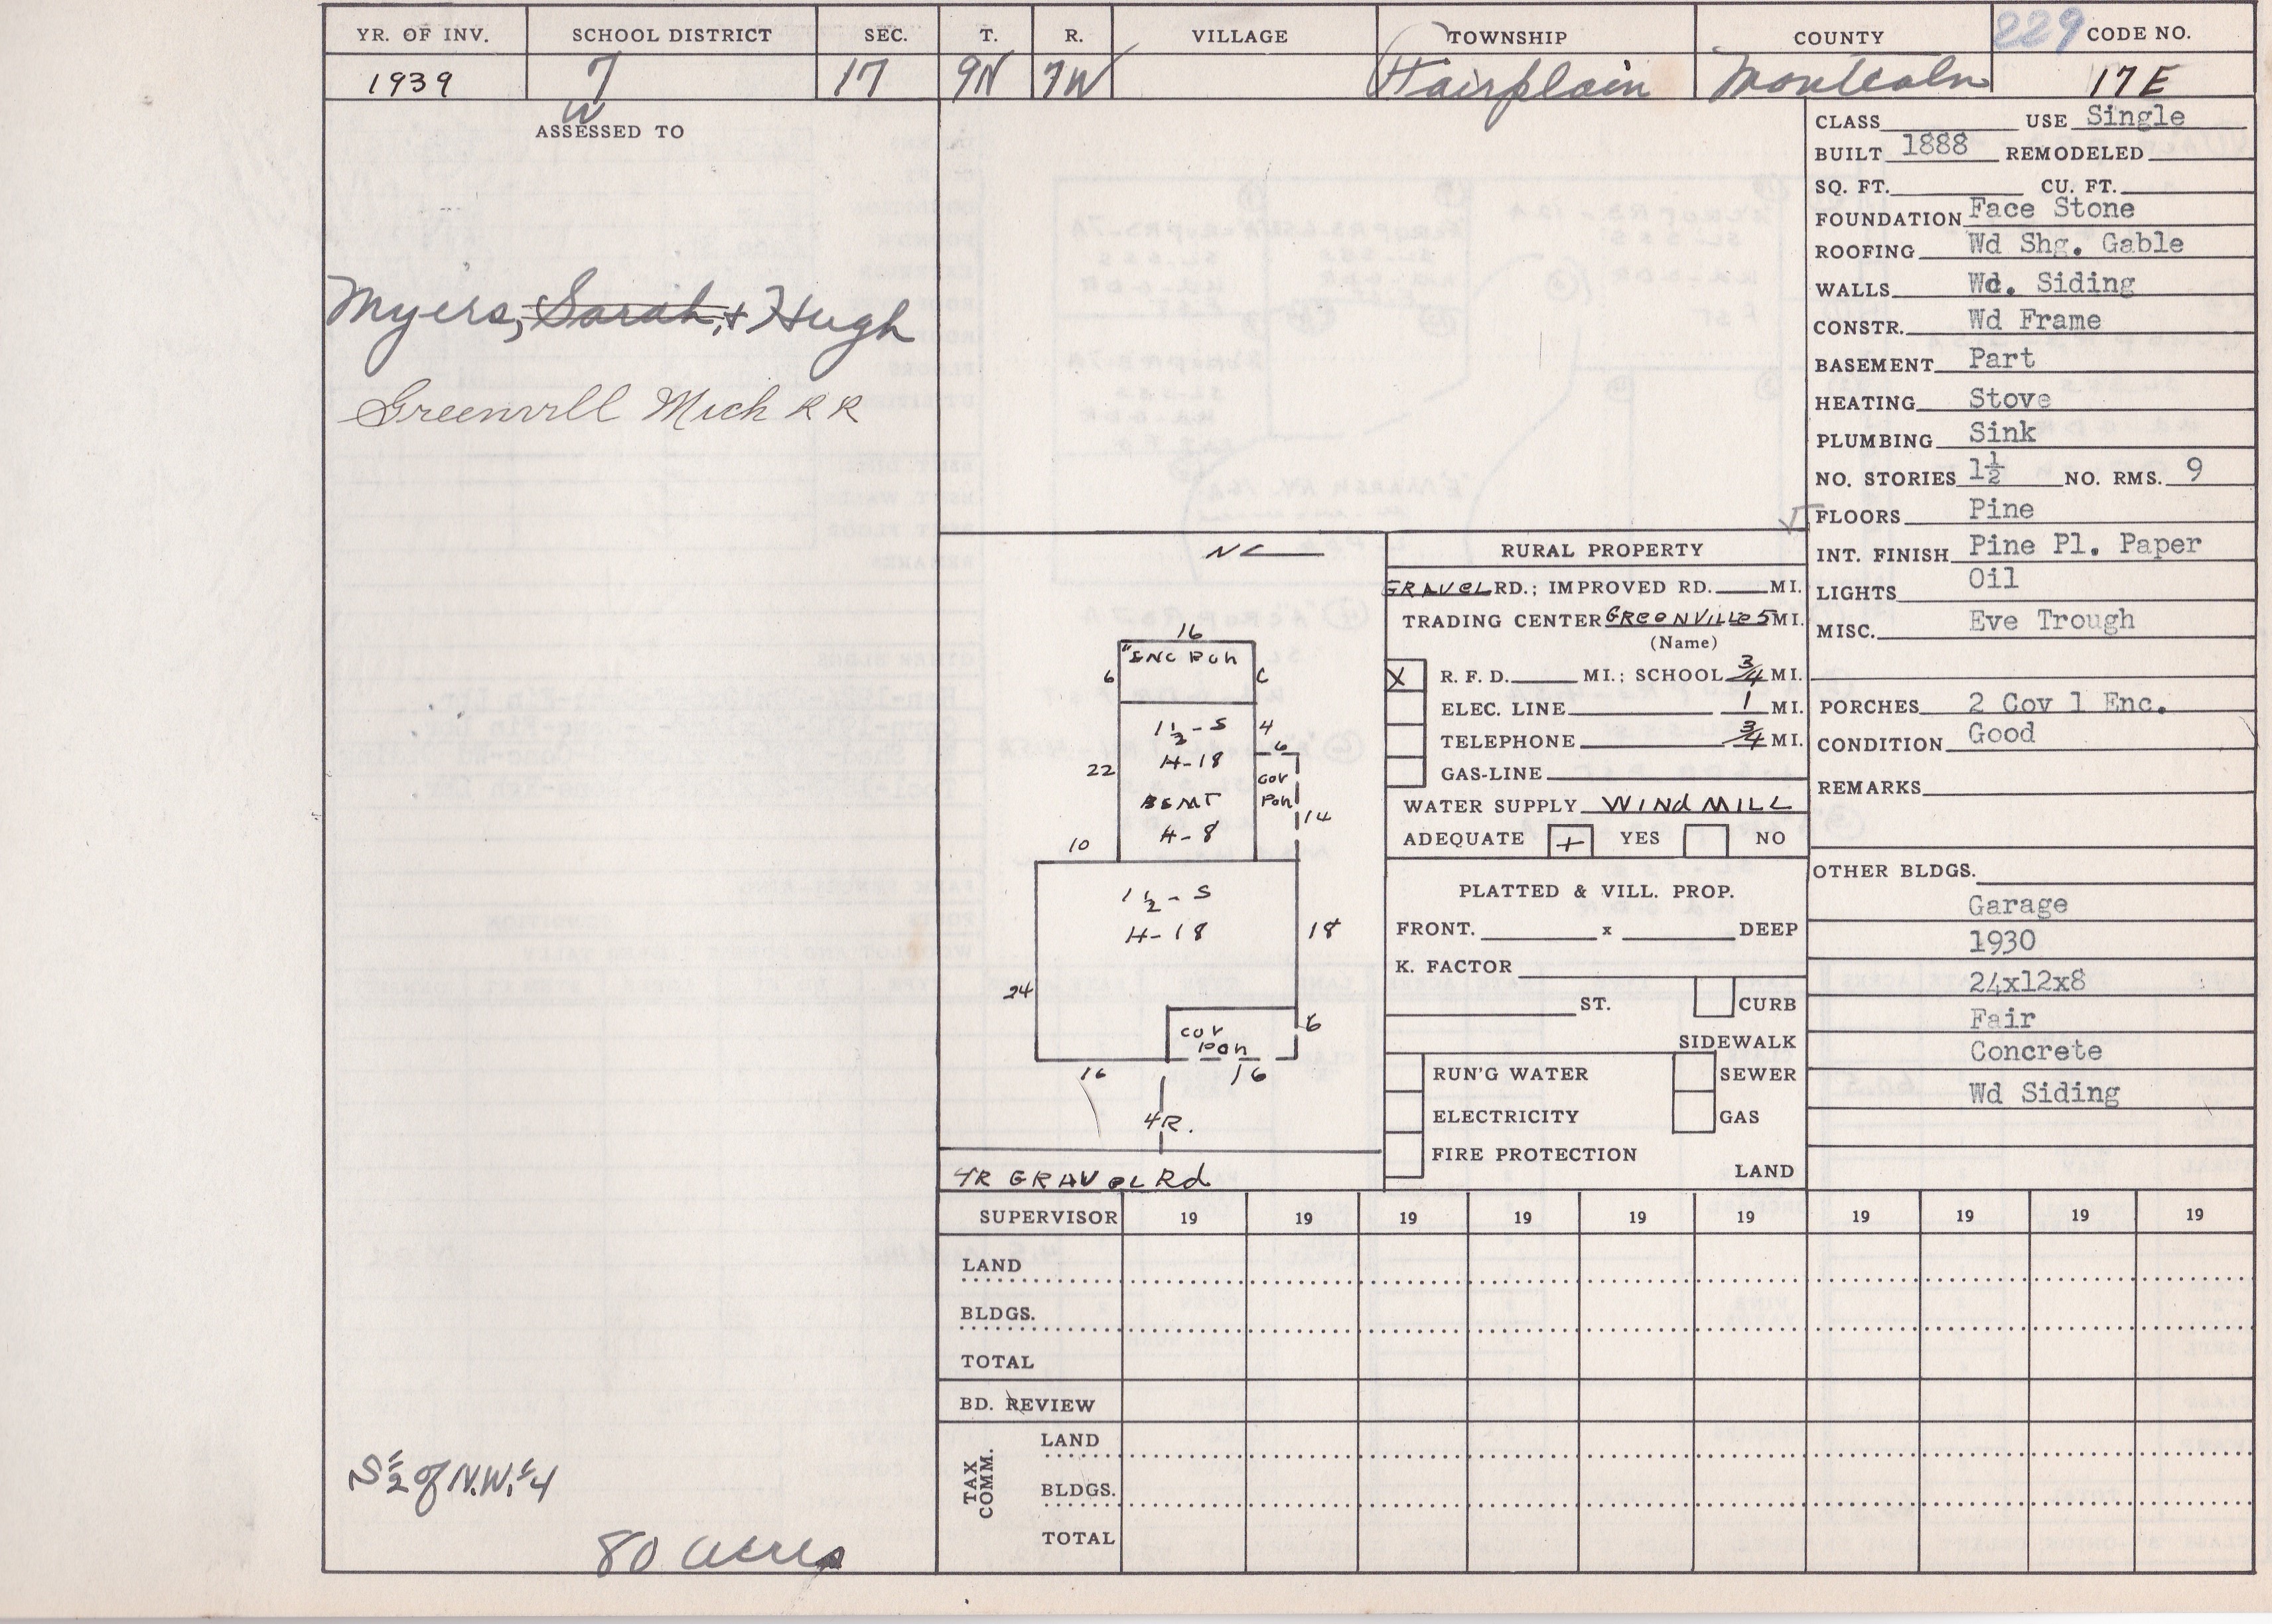 229
YR. OF INV. SCHOOL DISTRICT SEC. T. R. VILLAGE TOWNSHIP COUNTY CODE NO.
1939 7 17 9N 7W Fairplain Montcalm 17E
W
ASSESSED TO
Myers, Sarah, + Hugh
Greenvill Mich R R
S 1/2 of N.W. 1/4
80 acres
CLASS USE Single
BUILT 1888 REMODELED
SQ. FT. CU. FT.
FOUNDATION Face Stone
ROOFING Wd Shg. Gable
WALLS Wd. Siding
CONSTR. Wd Frame
BASEMENT Part
HEATING Stove
PLUMBING Sink
NO. STORIES 1½ NO. RMS. 9
FLOORS Pine
INT. FINISH Pine Pl. Paper
LIGHTS Oil
MISC. Eve Trough
PORCHES 2 Cov 1 Enc.
CONDITION Good
REMARKS
OTHER BLDGS.
Garage
1930
24x12x8
Fair
Concrete
Wd Siding
N
16
6 ENC PCH 6
1½-S 4
H-18 6
22 COV
BSMT PCH
14
H-8
10
1½-S
H-18 18
24
COV 6
PCH
16 16
4R.
4R GRAVEL Rd
RURAL PROPERTY
GRAVEL RD.; IMPROVED RD. MI.
TRADING CENTER GREENVILLE 5 MI.
(Name)
X R. F. D. MI.; SCHOOL 3/4 MI.
ELEC. LINE 1 MI.
TELEPHONE 3/4 MI.
GAS-LINE
WATER SUPPLY WINDMILL
ADEQUATE + YES NO
PLATTED & VILL. PROP.
FRONT. x DEEP
K. FACTOR
ST. CURB
SIDEWALK
RUN'G WATER SEWER
ELECTRICITY GAS
FIRE PROTECTION
LAND
SUPERVISOR 19 19 19 19 19 19 19 19 19 19
LAND
BLDGS.
TOTAL
BD. REVIEW
TAX COMM.
LAND
BLDGS.
TOTAL